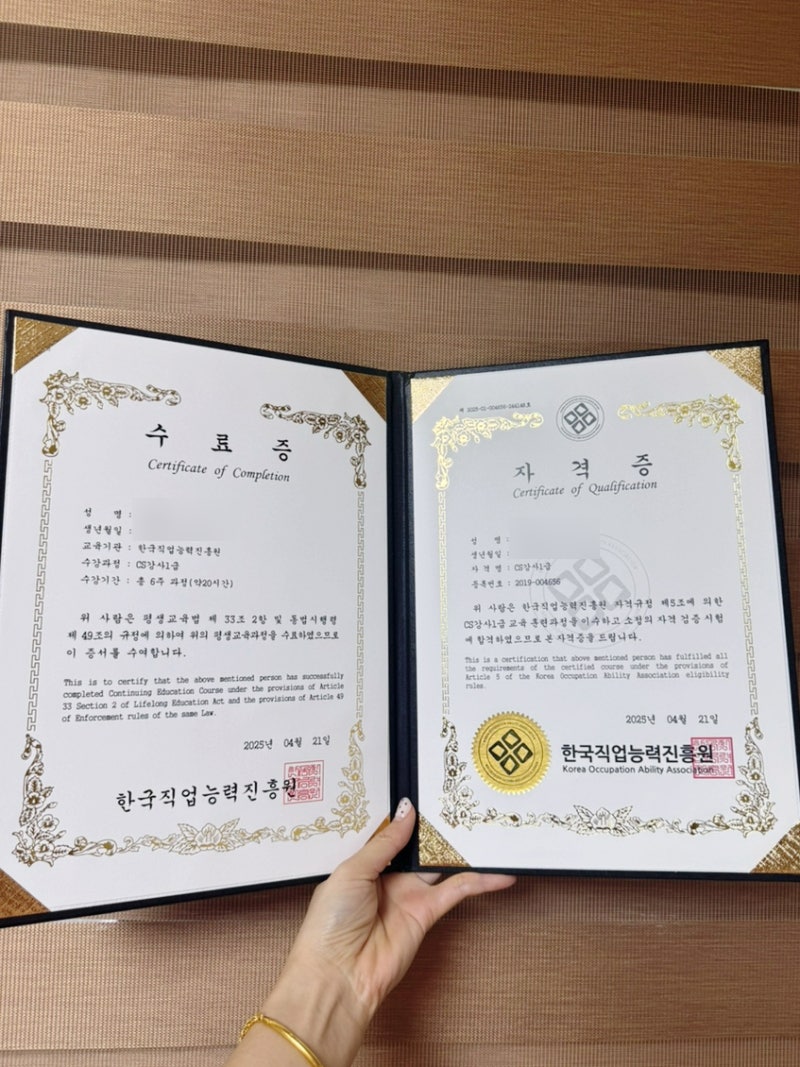 수 료 증
Certificate of Completion
성 명 :
생년월일 :
교육기관 : 한국직업능력진흥원
수강과정 : CS강사1급
수강기간 : 총 6주 과정(약20시간)
위 사람은 평생교육법 제 33조 2항 및 동법시행령
제 49조의 규정에 의하여 위의 평생교육과정을 수료하였으므로
이 증서를 수여합니다.
This is to certify that the above mentioned person has successfully
completed Continuing Education Course under the provisions of Article
33 Section 2 of Lifelong Education Act and the provisions of Article 49
of Enforcement rules of the same Law.
2025년 04월 21일
한국직업능력진흥원
자 격 증
Certificate of Qualification
성 명 :
생년월일 :
자 격 명 : CS강사1급
등록번호 : 2019-004656
위 사람은 한국직업능력진흥원 자격규정 제5조에 의한
CS강사1급 교육 훈련과정을 이수하고 소정의 자격 검증 시험
에 합격하였으므로 본 자격증을 드립니다.
This is a certification that above mentioned person has fulfilled all
the requirements of the certified course under the provisions of
Article 5 of the Korea Occupation Ability Association eligibility
rules.
2025년 04월 21일
한국직업능력진흥원
Korea Occupation Ability Association